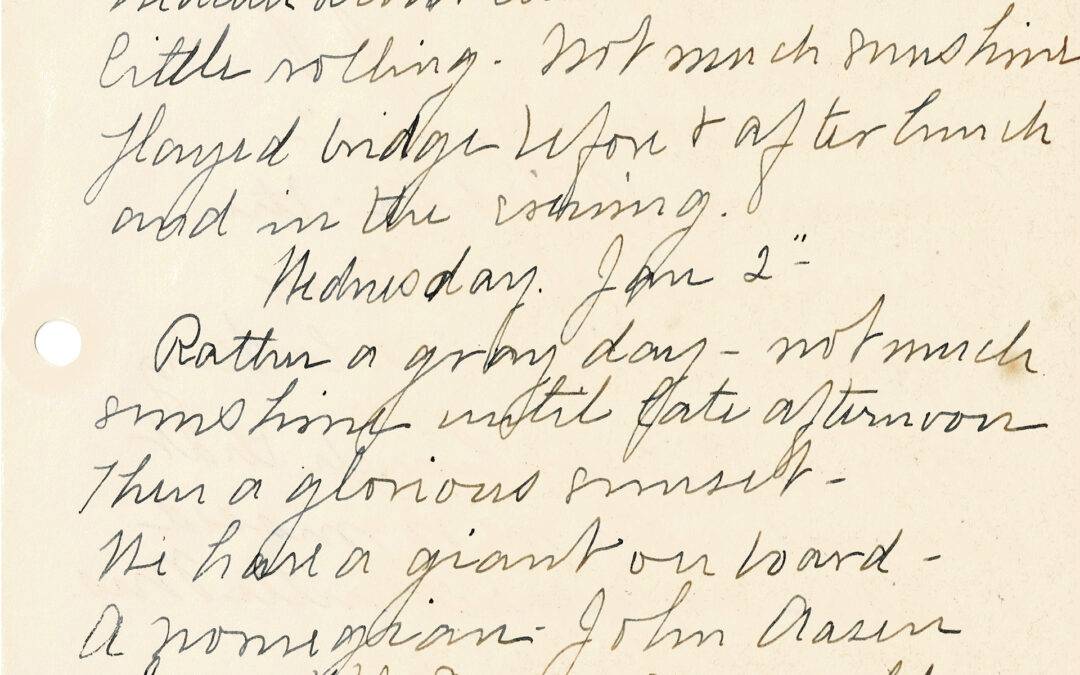 little rolling. Not much sunshine
Played bridge before & after lunch
and in the evening.
Wednesday. Jan 2"
Rather a gray day - not much
sunshine until late afternoon
Then a glorious sunset -
We have a giant on board -
A Norwegian - John Aasen